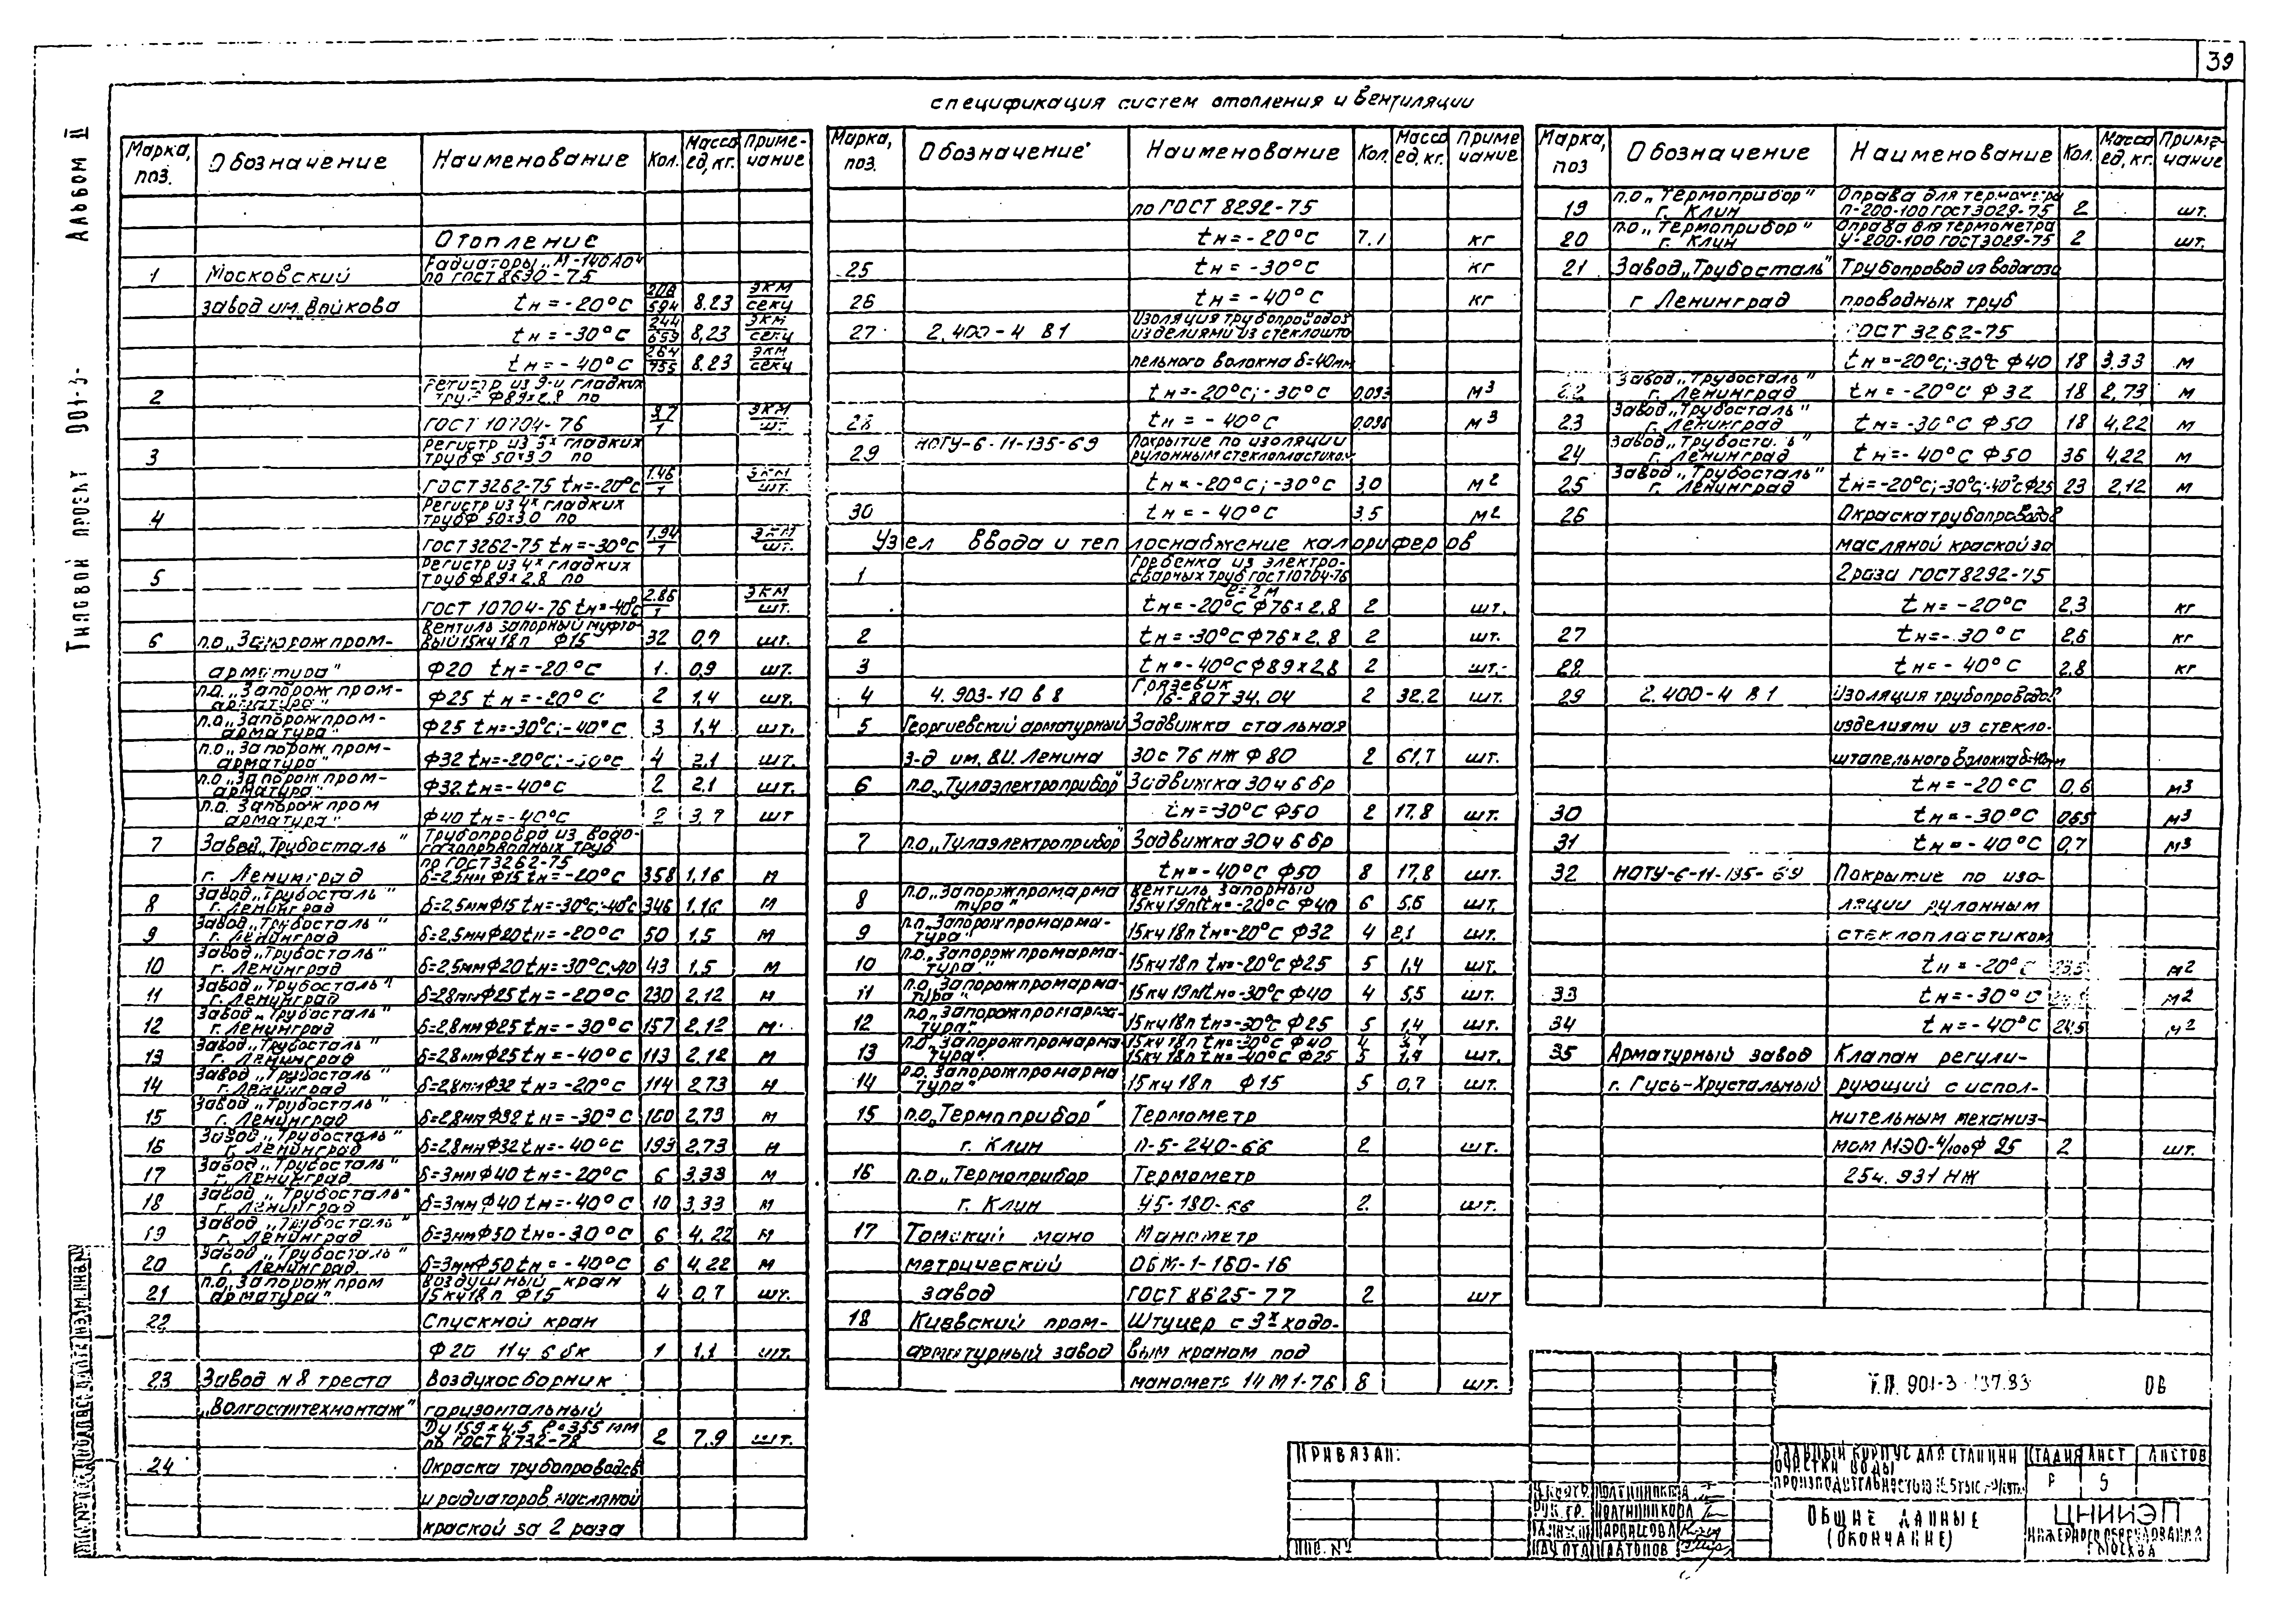 39
Спецификация систем отопления и вентиляции
Альбом II
Типовой проект 901-3-
Марка, поз. Обозначение Наименование Кол. Масса ед, кг. Примечание
Отопление
1 Московский Радиаторы „М-140АО" по ГОСТ 8690-75
завод им. Войкова tн=-20°С 208/594 8.23 экм/секц
tн=-30°С 244/659 8,23 экм/секц
tн=-40°С 264/755 8.23 экм/секц
2 Регистр из 3-и гладких труб Ф89×2.8 по
ГОСТ 10704-76 3,7/1 экм/шт.
3 Регистр из 3х гладких труб Ф 50×3.0 по
ГОСТ 3262-75 tн=-20°С 1.46/1 экм/шт.
4 Регистр из 4х гладких труб Ф 50×3.0 по
ГОСТ 3262-75 tн=-30°С 1,94/1 экм/шт.
5 Регистр из 4х гладких труб Ф89×2.8 по
ГОСТ 10704-76 tн=-40°С 2.86/1 экм/шт.
6 п.о „Запорожпром- Вентиль запорный муфтовый 15кч18п Ф15 32 0,7 шт.
арматура" Ф20 tн=-20°С 1. 0,9 шт.
п.о. „Запорожпромарматура" Ф25 tн=-20°С 2 1,4 шт.
п.о. „Запорожпромарматура" Ф25 tн=-30°С;-40°С 3 1,4 шт.
п.о „Запорожпромарматура" Ф32 tн=-20°С;-30°С 4 2.1 шт.
п.о „Запорожпромарматура" Ф32 tн=-40°С 2 2.1 шт.
п.о. Запорожпромарматура" Ф40 tн=-40°С 2 3,7 шт
7 Завод „Трубосталь" Трубопровод из водогазопроводных труб
г. Ленинград по ГОСТ 3262-75 δ=2,5мм Ф15 tн=-20°С 358 1,16 м
8 Завод „Трубосталь" г. Ленинград δ=2,5мм Ф15 tн=-30°С;-40°С 346 1.16 м
9 Завод „Трубосталь" г. Ленинград δ=2,5мм Ф20 tн=-20°С 50 1,5 м
10 Завод „Трубосталь" г. Ленинград δ=2,5мм Ф20 tн=-30°С-40 43 1,5 м
11 Завод „Трубосталь" г. Ленинград δ=2,8мм Ф25 tн=-20°С 230 2,12 м
12 Завод „Трубосталь" г. Ленинград δ=2,8мм Ф25 tн=-30°С 157 2,12 м
13 Завод „Трубосталь" г. Ленинград δ=2,8мм Ф25 tн=-40°С 113 2,12 м
14 Завод „Трубосталь" г. Ленинград δ=2,8мм Ф32 tн=-20°С 114 2.73 м
15 Завод „Трубосталь" г. Ленинград δ=2,8мм Ф32 tн=-30°С 160 2.73 м
16 Завод „Трубосталь" г. Ленинград δ=2,8мм Ф32 tн=-40°С 193 2.73 м
17 Завод „Трубосталь" г. Ленинград δ=3мм Ф40 tн=-20°С 6 3.33 м
18 Завод „Трубосталь" г. Ленинград δ=3мм Ф40 tн=-40°С 10 3,33 м
19 Завод „Трубосталь" г. Ленинград δ=3мм Ф50 tн=-30°С 6 4.22 м
20 Завод „Трубосталь" г. Ленинград δ=3мм Ф50 tн=-40°С 6 4,22 м
21 п.о „Запорожпромарматура" Воздушный кран 15кч18п Ф15 4 0,7 шт.
22 Спускной кран
Ф20 11ч 6 бк 1 1,1 шт.
23 Завод №8 треста Воздухосборник
„Волгосантехмонтаж" горизонтальный
Ду 159×4,5 ℓ=355 мм по ГОСТ 8732-78 2 7.9 шт.
24 Окраска трубопроводов
и радиаторов масляной
краской за 2 раза
Марка, поз. Обозначение Наименование Кол. Масса ед, кг. Примечание
по ГОСТ 8292-75
tн=-20°С 7.1 кг
25 tн=-30°С кг
26 tн=-40°С кг
27 2.400-4 В1 Изоляция трубопроводов изделиями из стеклошта
пельного волокна δ=40мм
tн=-20°С;-30°С 0,093 м³
28 tн=-40°С 0,096 м³
29 МОТУ-6-11-135-69 Покрытие по изоляции рулонным стеклопластиком
tн=-20°С;-30°С 3,0 м²
30 tн=-40°С 3.5 м²
Узел ввода и теплоснабжение калориферов
1 Гребенка из электросварных труб ГОСТ 10704-76 ℓ=2м
tн=-20°С Ф76×2.8 2 шт.
2 tн=-30°С Ф76×2,8 2 шт.
3 tн=-40°С Ф89×2,8 2 шт.
4 4.903-10 в 8 Грязевик 16-80 Т 34.04 2 32.2 шт.
5 Георгиевский арматурный Задвижка стальная
з-д им. В.И. Ленина 30с 76 нж Ф80 2 61,7 шт.
6 п.о „Тулаэлектроприбор" Задвижка 30ч 6 бр
tн=-30°С Ф50 2 17.8 шт.
7 п.о „Тулаэлектроприбор" Задвижка 30ч 6 бр
tн=-40°С Ф50 8 17,8 шт.
8 п.о „Запорожпромарматура" Вентиль запорный 15кч19п tн=-20°С Ф40 6 5.5 шт.
9 п.о „Запорожпромарматура" 15кч18п tн=-20°С Ф32 4 2,1 шт.
10 п.о. „Запорожпромарматура." 15кч18п tн=-20°С Ф25 5 1,4 шт.
11 п.о „Запорожпромарматура" 15кч19п tн=-30°С Ф40 4 5,5 шт.
12 п.о „Запорожпромарматура" 15кч18п tн=-30°С Ф25 5 1,4 шт.
13 п.о „Запорожпромарматура" 15кч18п tн=-30°С Ф40 4 3,7
15кч18п tн=-40°С Ф25 5 1,4 шт.
14 п.о. Запорожпромарматура" 15кч18п Ф15 5 0,7 шт.
15 п.о „Термоприбор" Термометр
г. Клин П-5-240-66 2 шт.
16 п.о „Термоприбор Термометр
г. Клин У5-180-66 2 шт.
17 Томский мано Манометр
метрический ОБМ-1-160-16
завод ГОСТ 8625-77 2 шт
18 Киевский пром- Штуцер с 3х ходо-
арматурный завод вым краном под
манометр 14М1-76 8 шт.
Марка, поз Обозначение Наименование Кол. Масса ед, кг. Примечание
19 п.о „Термоприбор" г. Клин Оправа для термометра П-200-100 ГОСТ 3029-75 2 шт.
20 п.о „Термоприбор" г. Клин Оправа для термометра У-200-100 ГОСТ 3029-75 2 шт.
21 Завод „Трубосталь" Трубопровод из водогазо
г Ленинград проводных труб
ГОСТ 3262-75
tн=-20°С;-30°С Ф40 18 3.33 м
22 Завод „Трубосталь" г. Ленинград tн=-20°С Ф32 18 2,73 м
23 Завод „Трубосталь" г. Ленинград tн=-30°С Ф50 18 4,22 м
24 Завод „Трубосталь" г. Ленинград tн=-40°С Ф50 36 4,22 м
25 Завод „Трубосталь" г. Ленинград tн=-20°С;-30°С;-40°С Ф25 23 2,12 м
26 Окраска трубопроводов
масляной краской за
2 раза ГОСТ 8292-75
tн=-20°С 2,3 кг
27 tн=-30°С 2,6 кг
28 tн=-40°С 2.8 кг
29 2.400-4 В1 Изоляция трубопроводов
изделиями из стекло-
штапельного волокна δ=40мм
tн=-20°С 0,6 м³
30 tн=-30°С 0,65 м³
31 tн=-40°С 0,7 м³
32 МОТУ-6-11-135-69 Покрытие по изо-
ляции рулонным
стеклопластиком
tн=-20°С м²
33 tн=-30°С м²
34 tн=-40°С 24,5 м²
35 Арматурный завод Клапан регули-
г. Гусь-Хрустальный рующий с испол-
нительным механиз-
мом МЭО-4/100 Ф 25 2 шт.
25ч. 931 НЖ
Т.П. 901-3-137.83 ОВ
Привязан:
Инв. №
корпус для станции очистки воды
производительностью
Стадия Лист Листов
Р 5
Общие данные (окончание)
ЦНИИЭП
инженерного оборудования
г. Москва